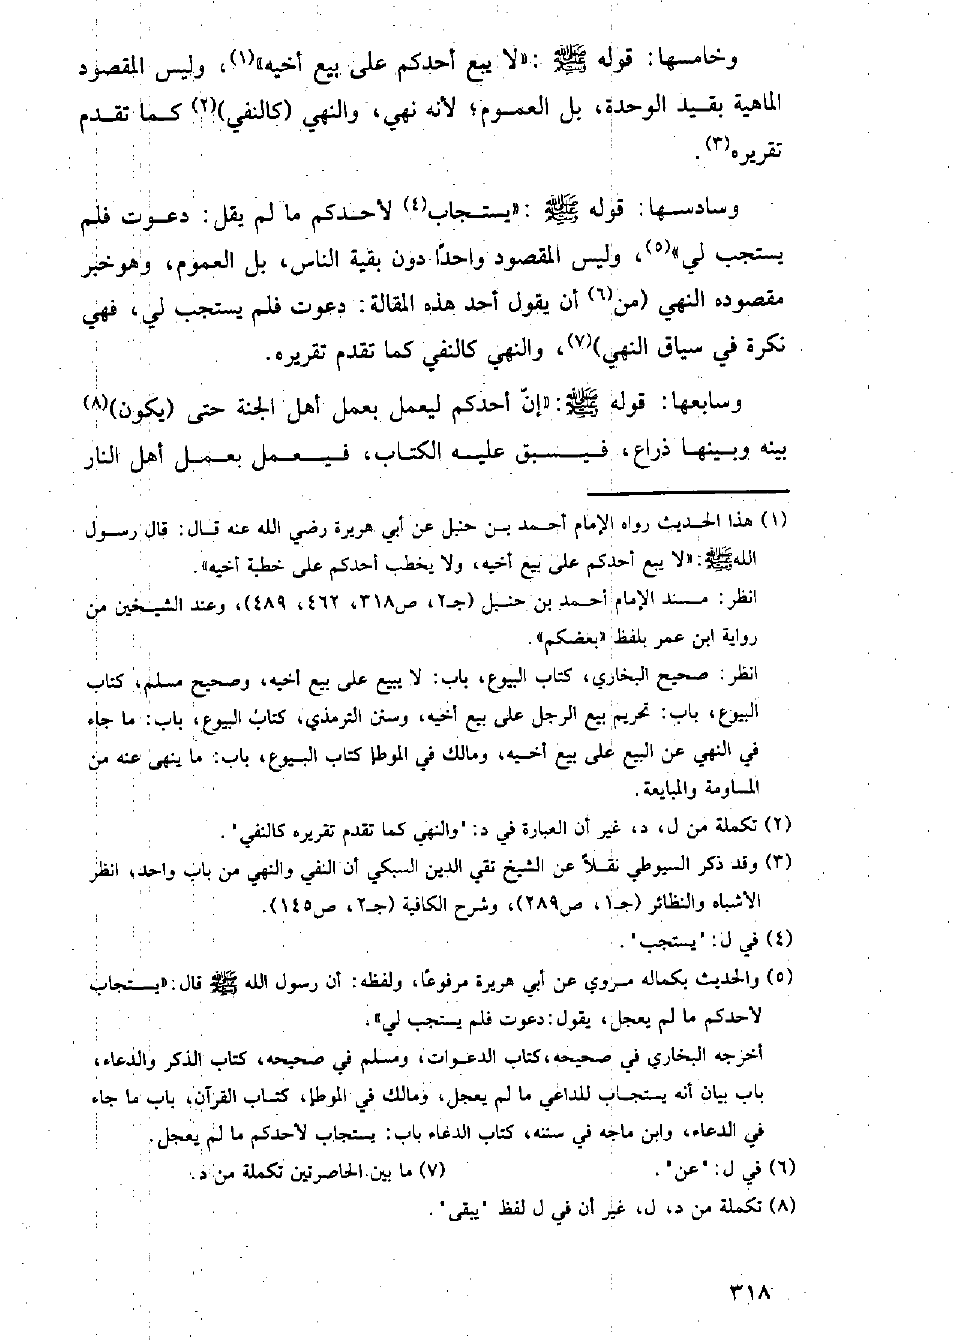 وخامسها: قوله ﷺ :«لا يبع أحدكم على بيع أخيه»(١)، وليس المقصود
الماهية بقيد الوحدة، بل العموم؛ لأنه نهي، والنهي (كالنفي)(٢) كما تقدم
تقريره(٣).
وسادسها: قوله ﷺ :«يستجاب(٤) لأحدكم ما لم يقل: دعوت فلم
يستجب لي»(٥)، وليس المقصود واحدًا دون بقية الناس، بل العموم، وهو خبر
مقصوده النهي (من(٦) أن يقول أحد هذه المقالة: دعوت فلم يستجب لي، فهي
نكرة في سياق النهي)(٧)، والنهي كالنفي كما تقدم تقريره.
وسابعها: قوله ﷺ: «إنّ أحدكم ليعمل بعمل أهل الجنة حتى (يكون)(٨)
بينه وبينها ذراع، فيسبق عليه الكتاب، فيعمل بعمل أهل النار
(١) هذا الحديث رواه الإمام أحمد بن حنبل عن أبي هريرة رضي الله عنه قال: قال رسول
الله ﷺ: «لا يبع أحدكم على بيع أخيه، ولا يخطب أحدكم على خطبة أخيه».
انظر: مسند الإمام أحمد بن حنبل (جـ٢، ص٣١٨، ٤٦٢، ٤٨٩)، وعند الشيخين من
رواية ابن عمر بلفظ «بعضكم».
انظر: صحيح البخاري، كتاب البيوع، باب: لا يبيع على بيع أخيه، وصحيح مسلم، كتاب
البيوع، باب: تحريم بيع الرجل على بيع أخيه، وسنن الترمذي، كتاب البيوع، باب: ما جاء
في النهي عن البيع على بيع أخيه، ومالك في الموطإ كتاب البيوع، باب: ما ينهى عنه من
المساومة والمبايعة.
(٢) تكملة من ل، د، غير أن العبارة في د: "والنهي كما تقدم تقريره كالنفي".
(٣) وقد ذكر السيوطي نقلاً عن الشيخ تقي الدين السبكي أن النفي والنهي من باب واحد، انظر
الأشباه والنظائر (جـ١، ص٢٨٩)، وشرح الكافية (جـ٢، ص١٤٥).
(٤) في ل: "يستجب".
(٥) والحديث بكماله مروي عن أبي هريرة مرفوعًا، ولفظه: أن رسول الله ﷺ قال: «يستجاب
لأحدكم ما لم يعجل، يقول: دعوت فلم يستجب لي».
أخرجه البخاري في صحيحه، كتاب الدعوات، ومسلم في صحيحه، كتاب الذكر والدعاء،
باب بيان أنه يستجاب للداعي ما لم يعجل، ومالك في الموطإ، كتاب القرآن، باب ما جاء
في الدعاء، وابن ماجه في سننه، كتاب الدعاء باب: يستجاب لأحدكم ما لم يعجل.
(٦) في ل: "عن". (٧) ما بين الحاصرتين تكملة من د.
(٨) تكملة من د، ل، غير أن في ل لفظ "يبقى".
٣١٨